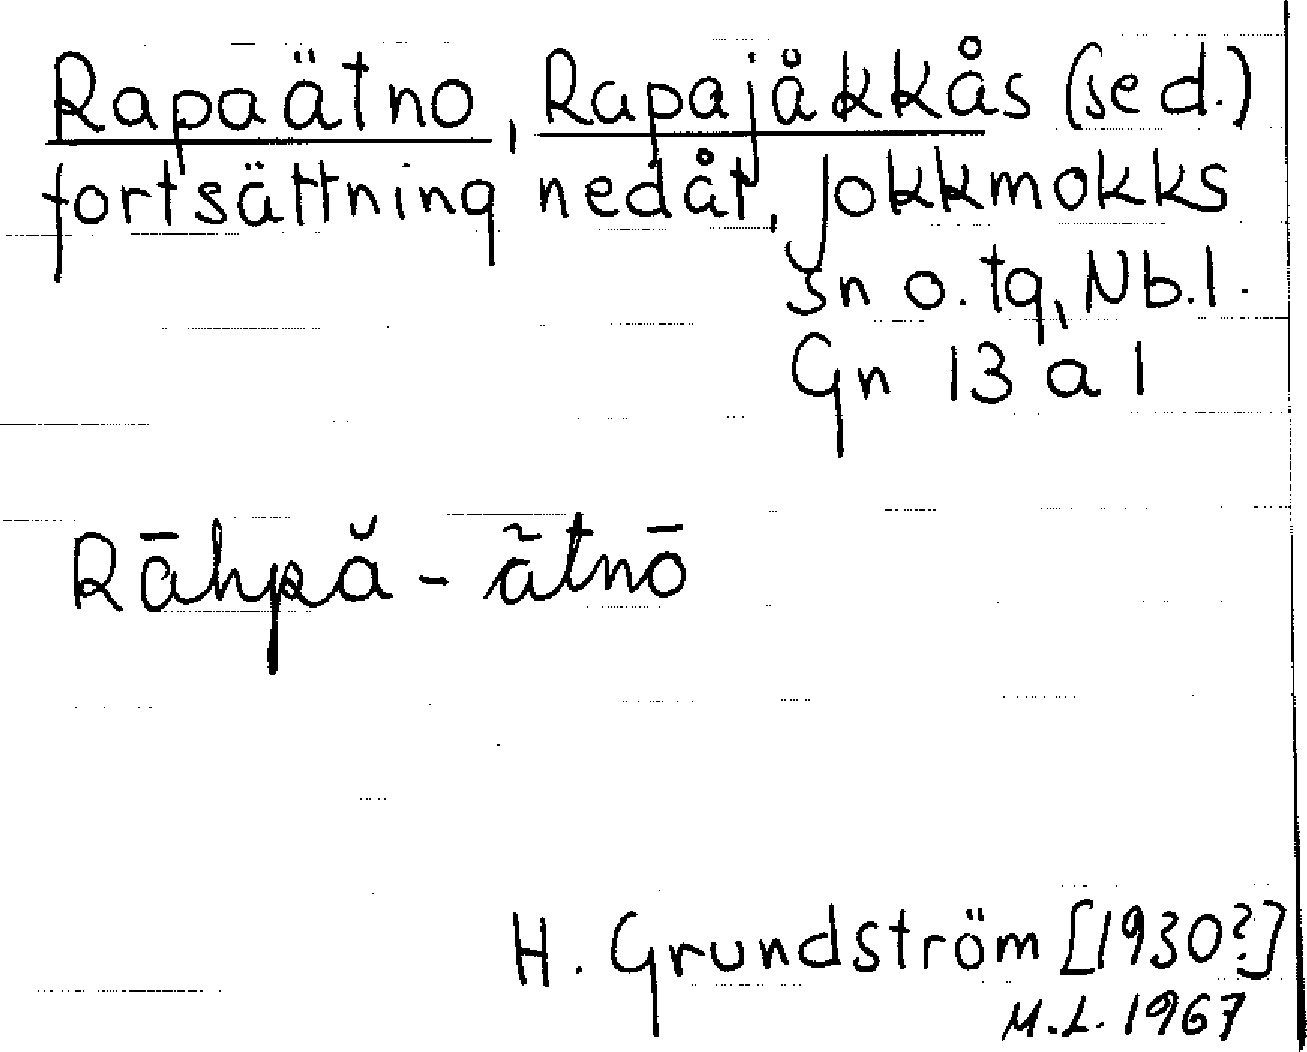 Rapaätno, Rapajåkkås (se d.)
fortsättning nedåt, Jokkmokks
sn o. tg, Nb. l.
Gn 13 a 1
Rāhpă - ãtnō
H. Grundström [1930?]
M.L. 1967